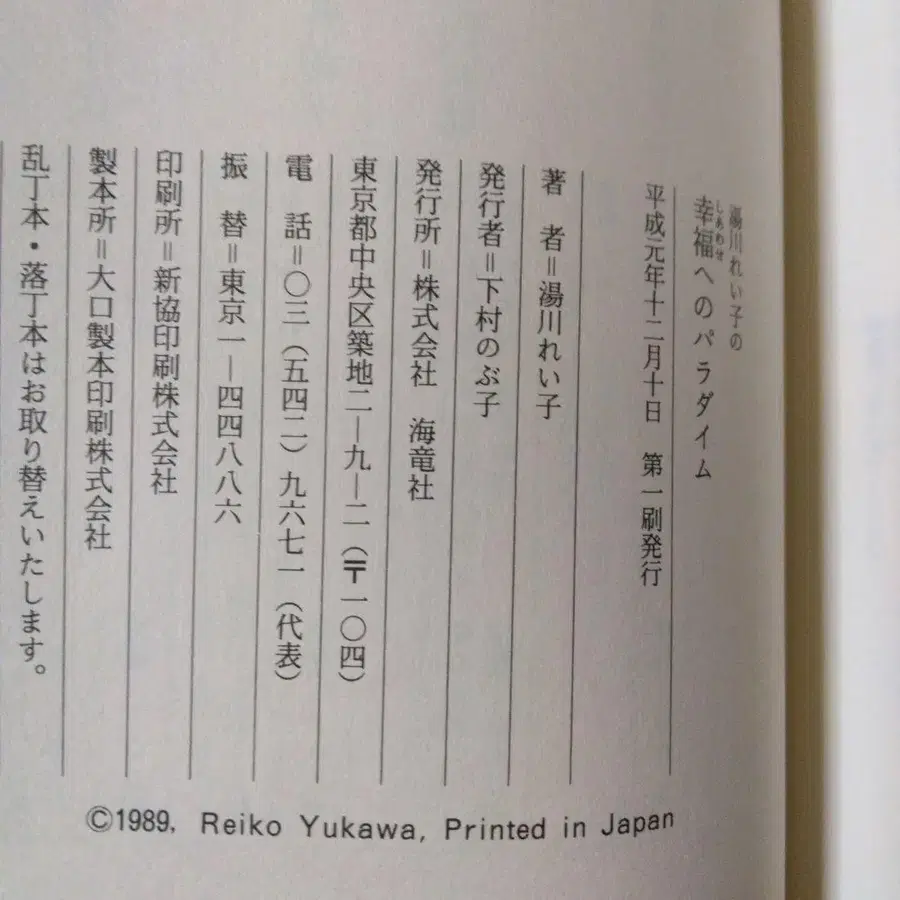 湯川れい子の
幸福へのパラダイム
しあわせ
平成元年十二月十日 第一刷発行
著 者＝湯川れい子
発行者＝下村のぶ子
発行所＝株式会社 海竜社
東京都中央区築地二―九―二（〒一〇四）
電 話＝〇三（五四二）九六七一（代表）
振 替＝東京一―四四八八六
印刷所＝新協印刷株式会社
製本所＝大口製本印刷株式会社
乱丁本・落丁本はお取り替えいたします。
©1989, Reiko Yukawa, Printed in Japan